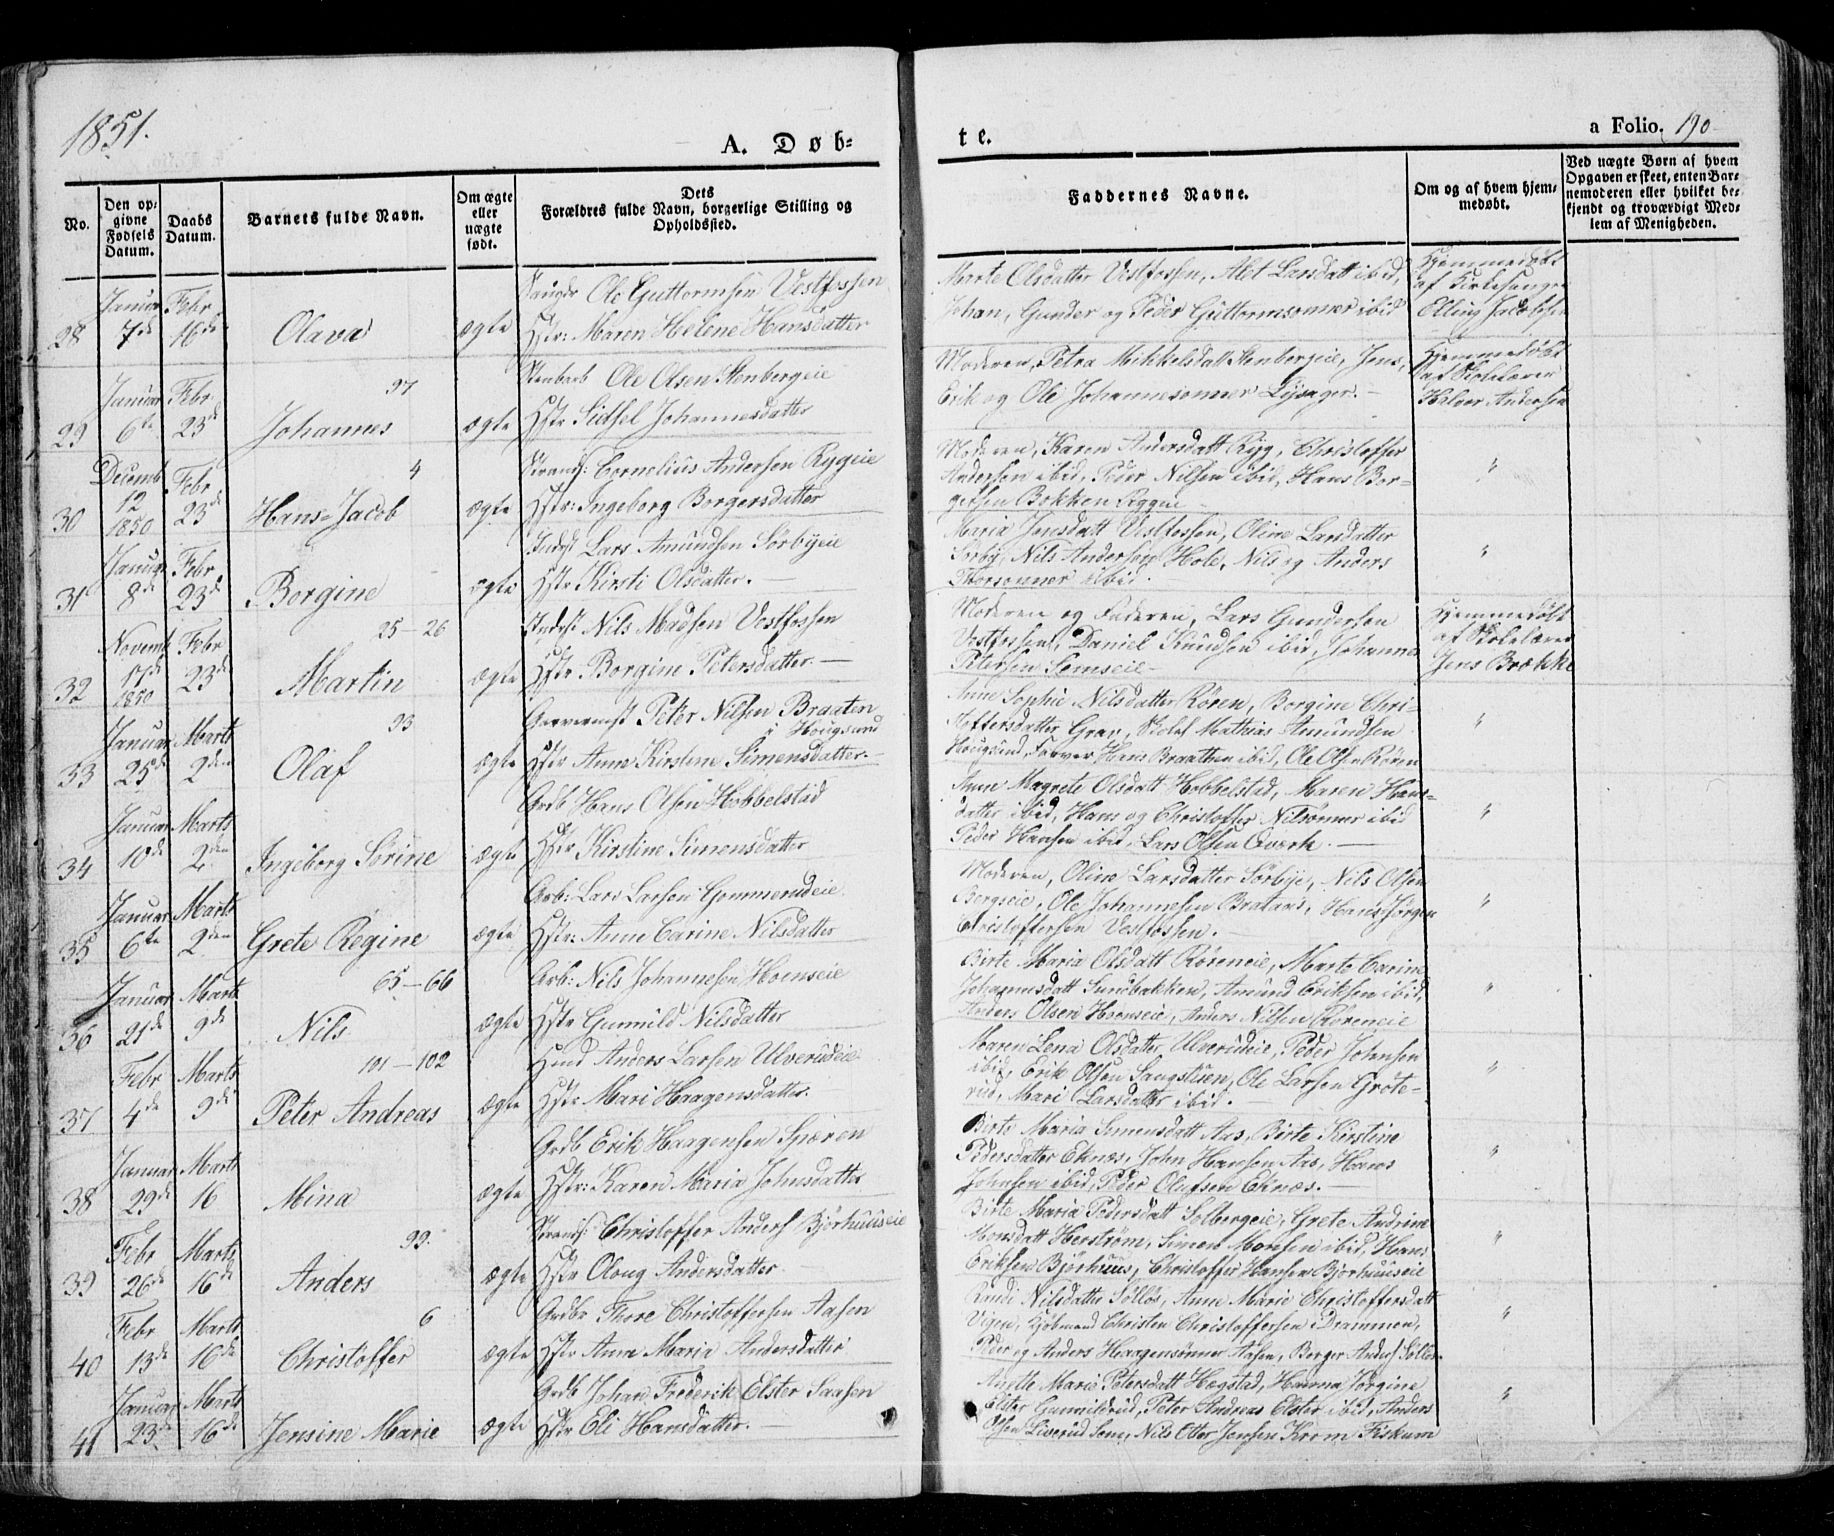 1851.
A. Døb=
te.
a Folio. 190
No.
Den op-
givne
Fødsels
Datum.
Daabs
Datum.
Barnets fulde Navn.
Om ægte
eller
uægte
født.
Dets
Forældres fulde Navn, borgerlige Stilling og
Opholdssted.
Faddernes Navne.
Om og af hvem hjem-
medøbt.
Ved uægte Børn af hvem
Opgaven er skeet, enten Bar-
nemoderen eller hvilket be-
kjendt og troværdigt Med-
lem af Menigheden.
28
Januar
7de
Febr
16de
Olava
ægte
Ole Guttormsen Vestfossen
Hstr: Maren Helene Hansdatter
Marte Olsdatter Vestfossen, Alet Larsdatt ibid,
Johan, Gunder og Peder Guttormsønner ibid
Hjemmedøbt
af Kirkesanger
Elling Jacobsen
29
Januar
6te
Febr
23de
97
Johannes
ægte
Ole Olsen Stenbergeie
Hstr Sidsel Johannesdatter
Moderen, Petra Mikkelsdatt Stenbergeie, Jens,
Erik og Ole Johannesønner Lysager. -
Hjemmedøbt
af Skolelærer
Halvor Andersen
30
Decemb
12
1850
Febr
23de
4
Hans=Jacob
ægte
Strands: Cornelius Andersen Rygeie
Hstr: Ingeborg Borgersdatter
Moderen, Karen Andersdatt Ryg, Christoffer
Andersen ibid, Peder Nilsen ibid, Hans Bor-
gersen Bokken
"
31
Januar
8de
Febr
23de
Borgine
ægte
Inderst Lars Amundsen Sørbyeie
Hstr Kirsti Olsdatter. -
Maria Jensdatt Vestfossen, Oline Larsdatter
Sørby, Nils Andersen Hole, Nils og Anders
Thorsønner ibid.
"
32
Novemb
17de
1850
Febr
23de
25-26
Martin
ægte
Inderst Nils Madsen Vestfossen
Hstr Borgine Petersdatter. -
Moderen og Faderen, Lars Gundersen
Vestfossen, Daniel Knudsen ibid, Johannes
Petersen Semseie -
Hjemmedøbt
af Skolelærer
Jens Brække
33
Januar
25de
Marts
2den
93
Olaf
ægte
Peter Nilsen Braaten
i Hougsund
Hstr Anne Kirstine Simensdatter. -
Anne Sophie Nilsdatter Røren, Borgine Chri-
stoffersdatter Grav, Mathias Amundsen
Hougsund, Farver Hans Braathen ibid, Ole Olsen Røren
"
34
Januar
10de
Marts
2den
Ingeborg Sørine
ægte
Grdb Hans Olsen Hobbelstad
Hstr Kirstine Simensdatter
Anne Magrete Olsdatt Hobbelstad, Maren Hans-
datter ibid, Hans og Christoffer Nilsønner ibid
Peder Hansen ibid, Lars Olsen Qværk. -
"
35
Januar
6te
Marts
2den
Grete Regine
ægte
Arb: Lars Larsen Gommerudeie
Hstr: Anne Carine Nilsdatter
Moderen, Oline Larsdatter Sørbye, Nils Olsen
Bergseie, Ole Johannesen Brataas, Hans Jørgen
Christoffersen Vestfossen.
"
36
Januar
21de
Marts
9de
65-66
Nils
ægte
Arb: Nils Johannesen Hoenseie
Hstr Gunnild Nilsdatter
Birte Maria Olsdatt Røreneie, Marte Carine
Johannesdatt Sundbakken, Amund Eriksen ibid,
Anders Olsen Hoenseie, Anders Nilsen Røreneie
"
37
Febr
4de
Marts
9de
101-102
Peter Andreas
ægte
Anders Larsen Ulverudeie
Hstr Mari Haagensdatter.
Maren Lena Olsdatter Ulverudeie, Peder Johnsen
ibid, Erik Olsen Sangstuen, Ole Larsen Grote-
rud, Mari Larsdatter ibid. -
"
38
Januar
29de
Marts
16
Mina
ægte
Grdb Erik Haagensen Spæren
Hstr: Karen Maria Johnsdatter
Birte Maria Simensdatt Aas, Birte Kirstine
Pedersdatter Eknæs, John Hansen Aas, Hans
Johnsen ibid, Peder Olufsen Eknæs. -
"
39
Febr
26de
Marts
16de
99.
Anders
ægte
Strands: Christoffer Anders Bjørhuuseie
Hstr Oloug Andersdatter
Birte Maria Pedersdatt Solbergeie, Grete Andrine
Monsdatt Herstrøm, Simen Monsen ibid, Hans
Eriksen Bjørhuus, Christoffer Hansen Bjørhuuseie
"
40
Febr
13de
Marts
16de
6
Christoffer
ægte
Grdbr Thore Christoffersen Aasen
Hstr Anne Maria Andersdatter
Nilsdatter Sølløs, Anne Marie Christoffersdatt
Vigen, Kjøbmand Christen Christoffersen i Drammen,
Peder og Anders Haagensønner Aasen, Borger Anders Sølløs
"
41
Januar
23de
Marts
16de
Jensine Marie
ægte
Grdb Johan Frederik Elster Saasen
Hstr Eli Hansdatter. -
Anette Marie Petersdatt Hægstad, Hanna Jørgine
Elster Gunnildrud, Peter Andreas Elster ibid, Anders
Olsen Liverud Sem, Nils Otter Jensen Krom Fiskum
"